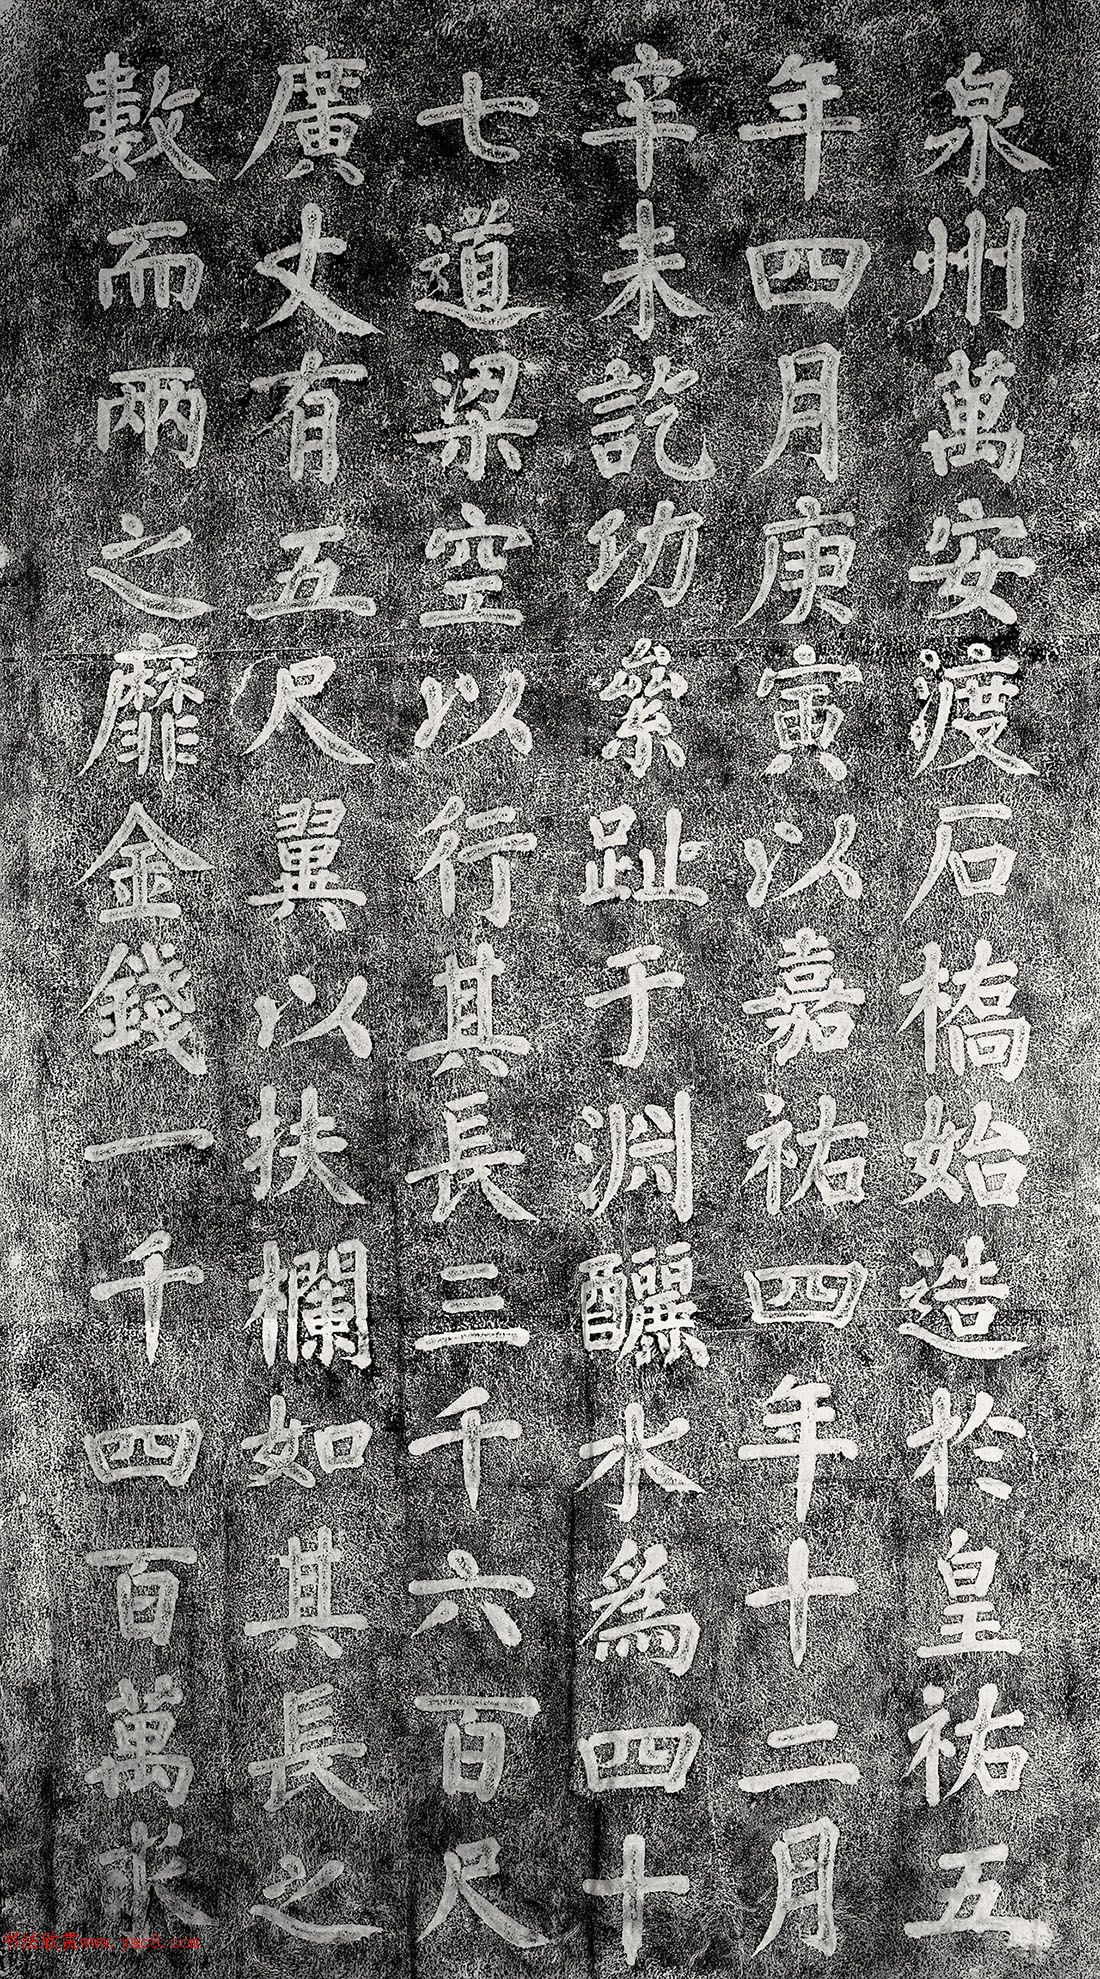 泉州萬安渡石橋始造於皇祐五
年四月庚寅以嘉祐四年十二月
辛未訖功絫趾于淵釃水為四十
七道梁空以行其長三千六百尺
廣丈有五尺翼以扶欄如其長之
數而兩之靡金錢一千四百萬求
书法欣赏www.yac8.com